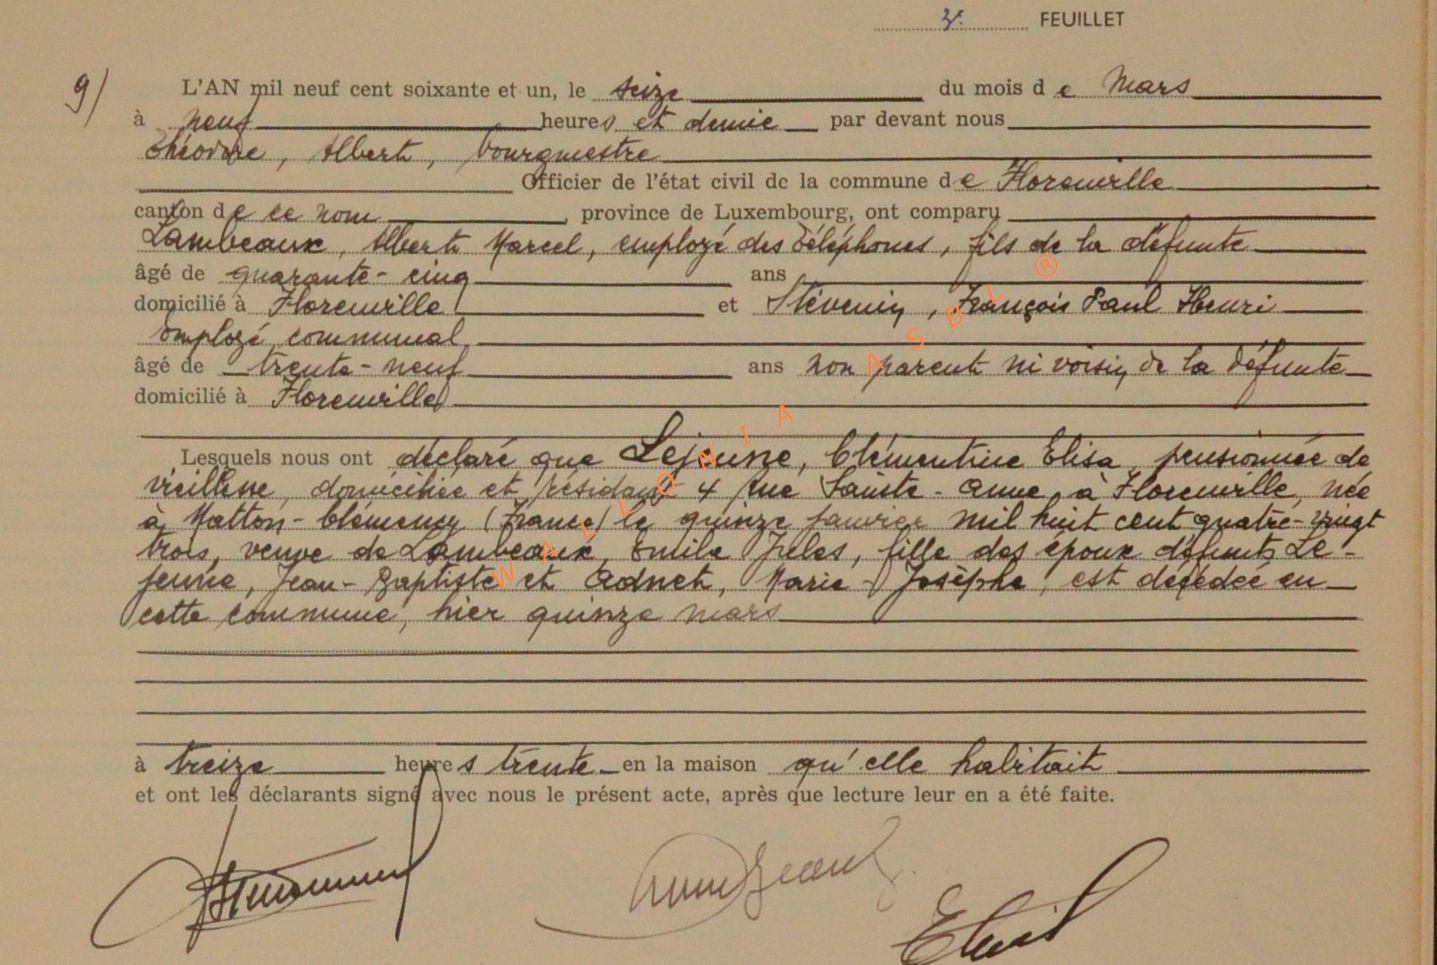 3e FEUILLET
9/ L'AN mil neuf cent soixante et un, le seize du mois de Mars
à neuf heures et demie par devant nous
Théodore, Albert, bourgmestre
Officier de l'état civil de la commune de Florenville
canton de ce nom, province de Luxembourg, ont comparu
Lambeaux, Albert Marcel, employé des téléphones, fils de la défunte
âgé de quarante-cinq ans
domicilié à Florenville et Stévenin, François Paul Henri
Employé communal
âgé de trente-neuf ans non parent ni voisin de la défunte
domicilié à Florenville
Lesquels nous ont déclaré que Lejeune, Clémentine Elisa, pensionnée de
vieillesse, domiciliée et résidant 4 Rue Sainte-Anne, à Florenville, née
à Matton-Clémency (France) le quinze janvier mil huit cent quatre-vingt
trois, veuve de Lambeaux, Emile Jules, fille des époux défunts Le-
jeune, Jean-Baptiste et Adnet, Marie-Josèphe, est décédée en
cette commune, hier quinze mars
à treize heures trente en la maison qu'elle habitait
et ont les déclarants signé avec nous le présent acte, après que lecture leur en a été faite.
WALLONIA ASBL ®